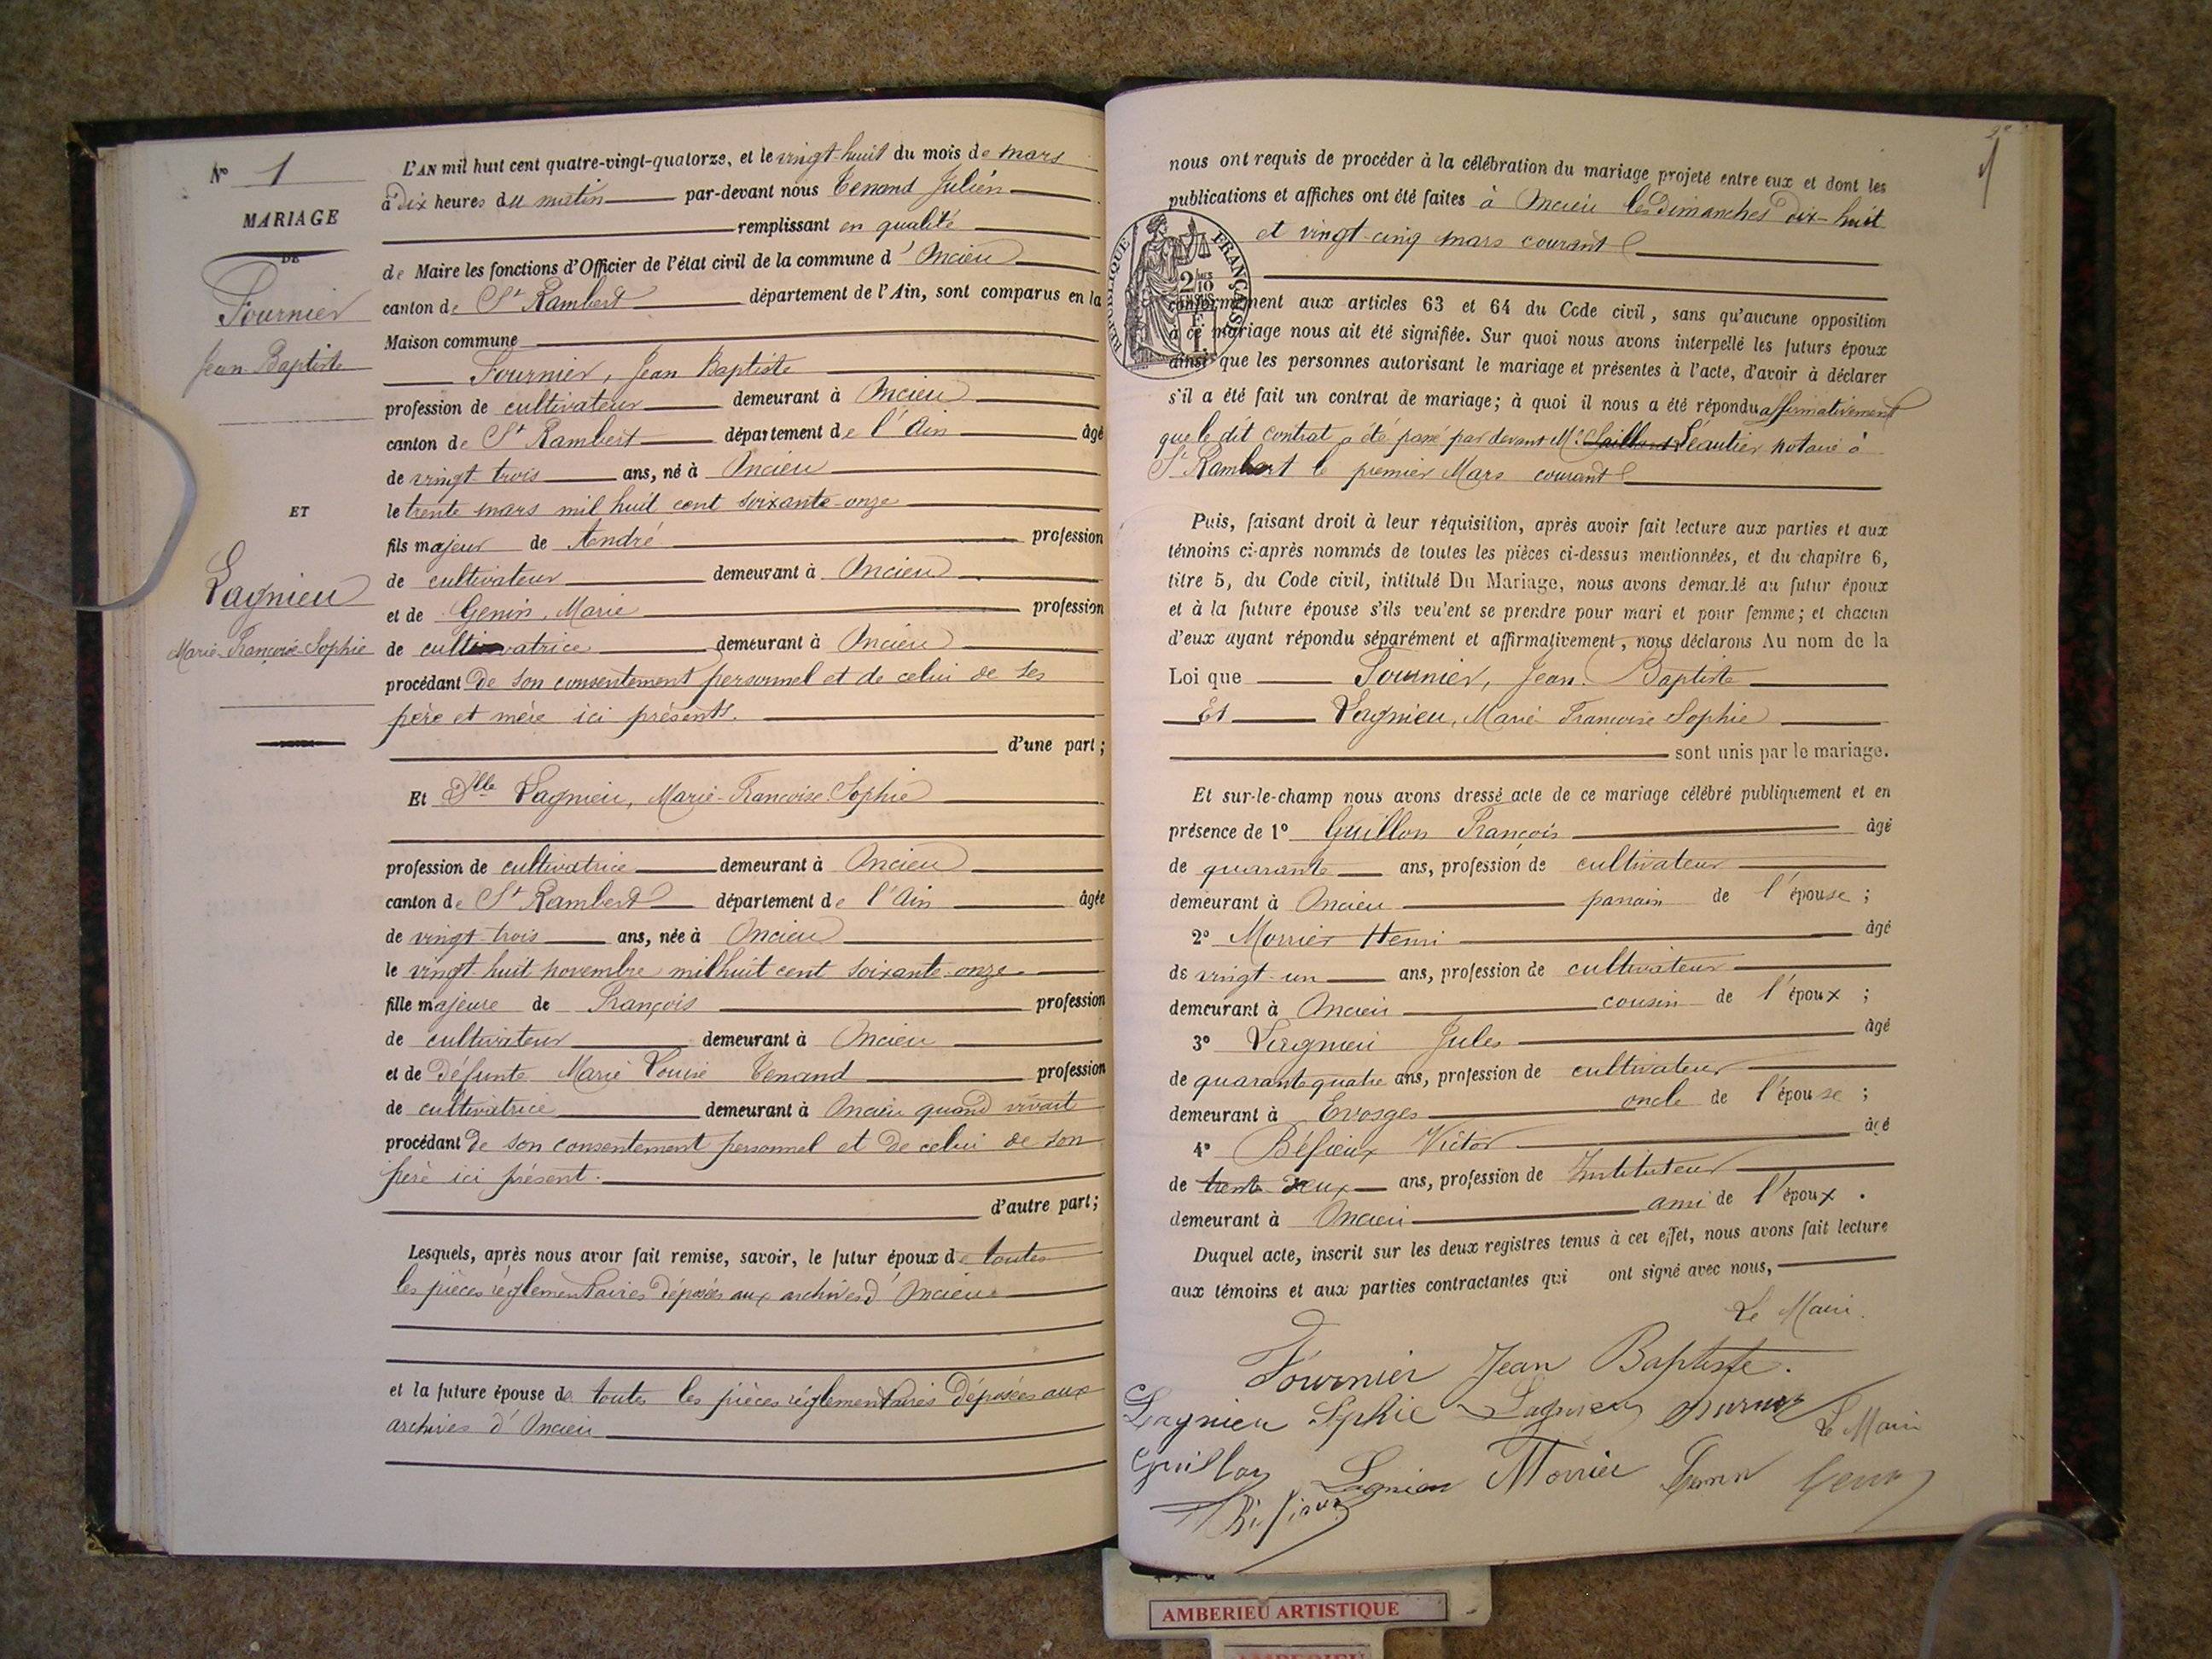 N° 1
MARIAGE
DE
Fournier
Jean Baptiste
ET
Lagnieu
Marie Françoise Sophie
L'AN mil huit cent quatre-vingt-quatorze, et le vingt-huit du mois de mars
à dix heures du matin par-devant nous Tenand Julien
remplissant en qualité
de Maire les fonctions d'Officier de l'état civil de la commune d'Oncieu
canton de St Rambert département de l'Ain, sont comparus en la
Maison commune
Fournier, Jean Baptiste
profession de cultivateur demeurant à Oncieu
canton de St Rambert département de l'Ain âgé
de vingt trois ans, né à Oncieu
le trente mars mil huit cent soixante-onze
fils majeur de André profession
de cultivateur demeurant à Oncieu
et de Genin, Marie profession
de cultivatrice demeurant à Oncieu
procédant de son consentement personnel et de celui de ses
père et mère ici présents.
d'une part ;
Et Dlle Lagnieu, Marie-Françoise Sophie
profession de cultivatrice demeurant à Oncieu
canton de St Rambert département de l'Ain âgée
de vingt-trois ans, née à Oncieu
le vingt huit novembre mil huit cent soixante-onze
fille majeure de François profession
de cultivateur demeurant à Oncieu
et de défunte Marie Louise Tenand profession
de cultivatrice demeurant à Oncieu quand vivait
procédant de son consentement personnel et de celui de son
père ici présent.
d'autre part ;
Lesquels, après nous avoir fait remise, savoir, le futur époux de toutes
les pièces réglementaires déposées aux archives d'Oncieu
et la future épouse de toutes les pièces réglementaires déposées aux
archives d'Oncieu
nous ont requis de procéder à la célébration du mariage projeté entre eux et dont les
publications et affiches ont été faites à Oncieu les dimanches dix-huit
et vingt-cinq mars courant
RÉPUBLIQUE FRANÇAISE
conformément aux articles 63 et 64 du Code civil, sans qu'aucune opposition
à ce mariage nous ait été signifiée. Sur quoi nous avons interpellé les futurs époux
ainsi que les personnes autorisant le mariage et présentes à l'acte, d'avoir à déclarer
s'il a été fait un contrat de mariage; à quoi il nous a été répondu affirmativement
que le dit contrat a été passé par devant Me Léautier notaire à
St Rambert le premier Mars courant
Puis, faisant droit à leur réquisition, après avoir fait lecture aux parties et aux
témoins ci-après nommés de toutes les pièces ci-dessus mentionnées, et du chapitre 6,
titre 5, du Code civil, intitulé Du Mariage, nous avons demandé au futur époux
et à la future épouse s'ils veulent se prendre pour mari et pour femme; et chacun
d'eux ayant répondu séparément et affirmativement, nous déclarons Au nom de la
Loi que Fournier, Jean Baptiste
Et Lagnieu, Marie Françoise Sophie
sont unis par le mariage.
Et sur-le-champ nous avons dressé acte de ce mariage célébré publiquement et en
présence de 1° Guillon François âgé
de quarante ans, profession de cultivateur
demeurant à Oncieu parrain de l'épouse ;
2° Morrier Henri âgé
de vingt-un ans, profession de cultivateur
demeurant à Oncieu cousin de l'époux ;
3° Lagnieu Jules âgé
de quarante quatre ans, profession de cultivateur
demeurant à Evosges oncle de l'épouse ;
4° Béfieux Victor âgé
de trente deux ans, profession de Instituteur
demeurant à Oncieu ami de l'époux.
Duquel acte, inscrit sur les deux registres tenus à cet effet, nous avons fait lecture
aux témoins et aux parties contractantes qui ont signé avec nous,
Le Maire.
Fournier Jean Baptiste.
Lagnieu Sophie Lagnieu Le Maire
Guillon Lagnieu Morrier
AMBERIEU ARTISTIQUE
AMBERIEU